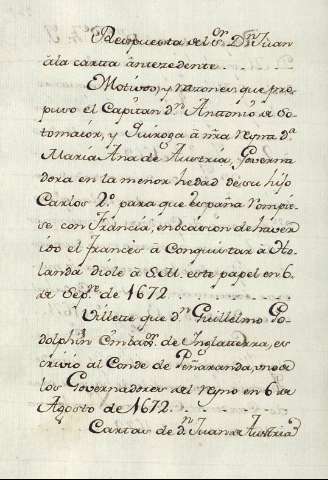 Respuesta del Sr. Dn. Juan
à la carta àntezedente.
Motivos, y razones, que pro
puso el Capitan dn. Antonio de So-
tomaior, y Quiroga à nra Reyna Da.
Maria Ana de Austria, Governa
dora en la menor hedad de su hijo
Carlos 2o. para que España rompie-
se con Francia, en òcasion de haver
ido el françès à Conquistar à Ho-
landa diòle à S.M. este papel en 6.
de Sepre. de 1672.
Villette que dn. Guillelmo Go-
dolphin Embaor. de Inglaterra, es
crivio al Conde de Peñaranda, uno de
los Governadores del Reyno en 6 de
Agosto de 1672.
Cartas de dn. Juan de Austria